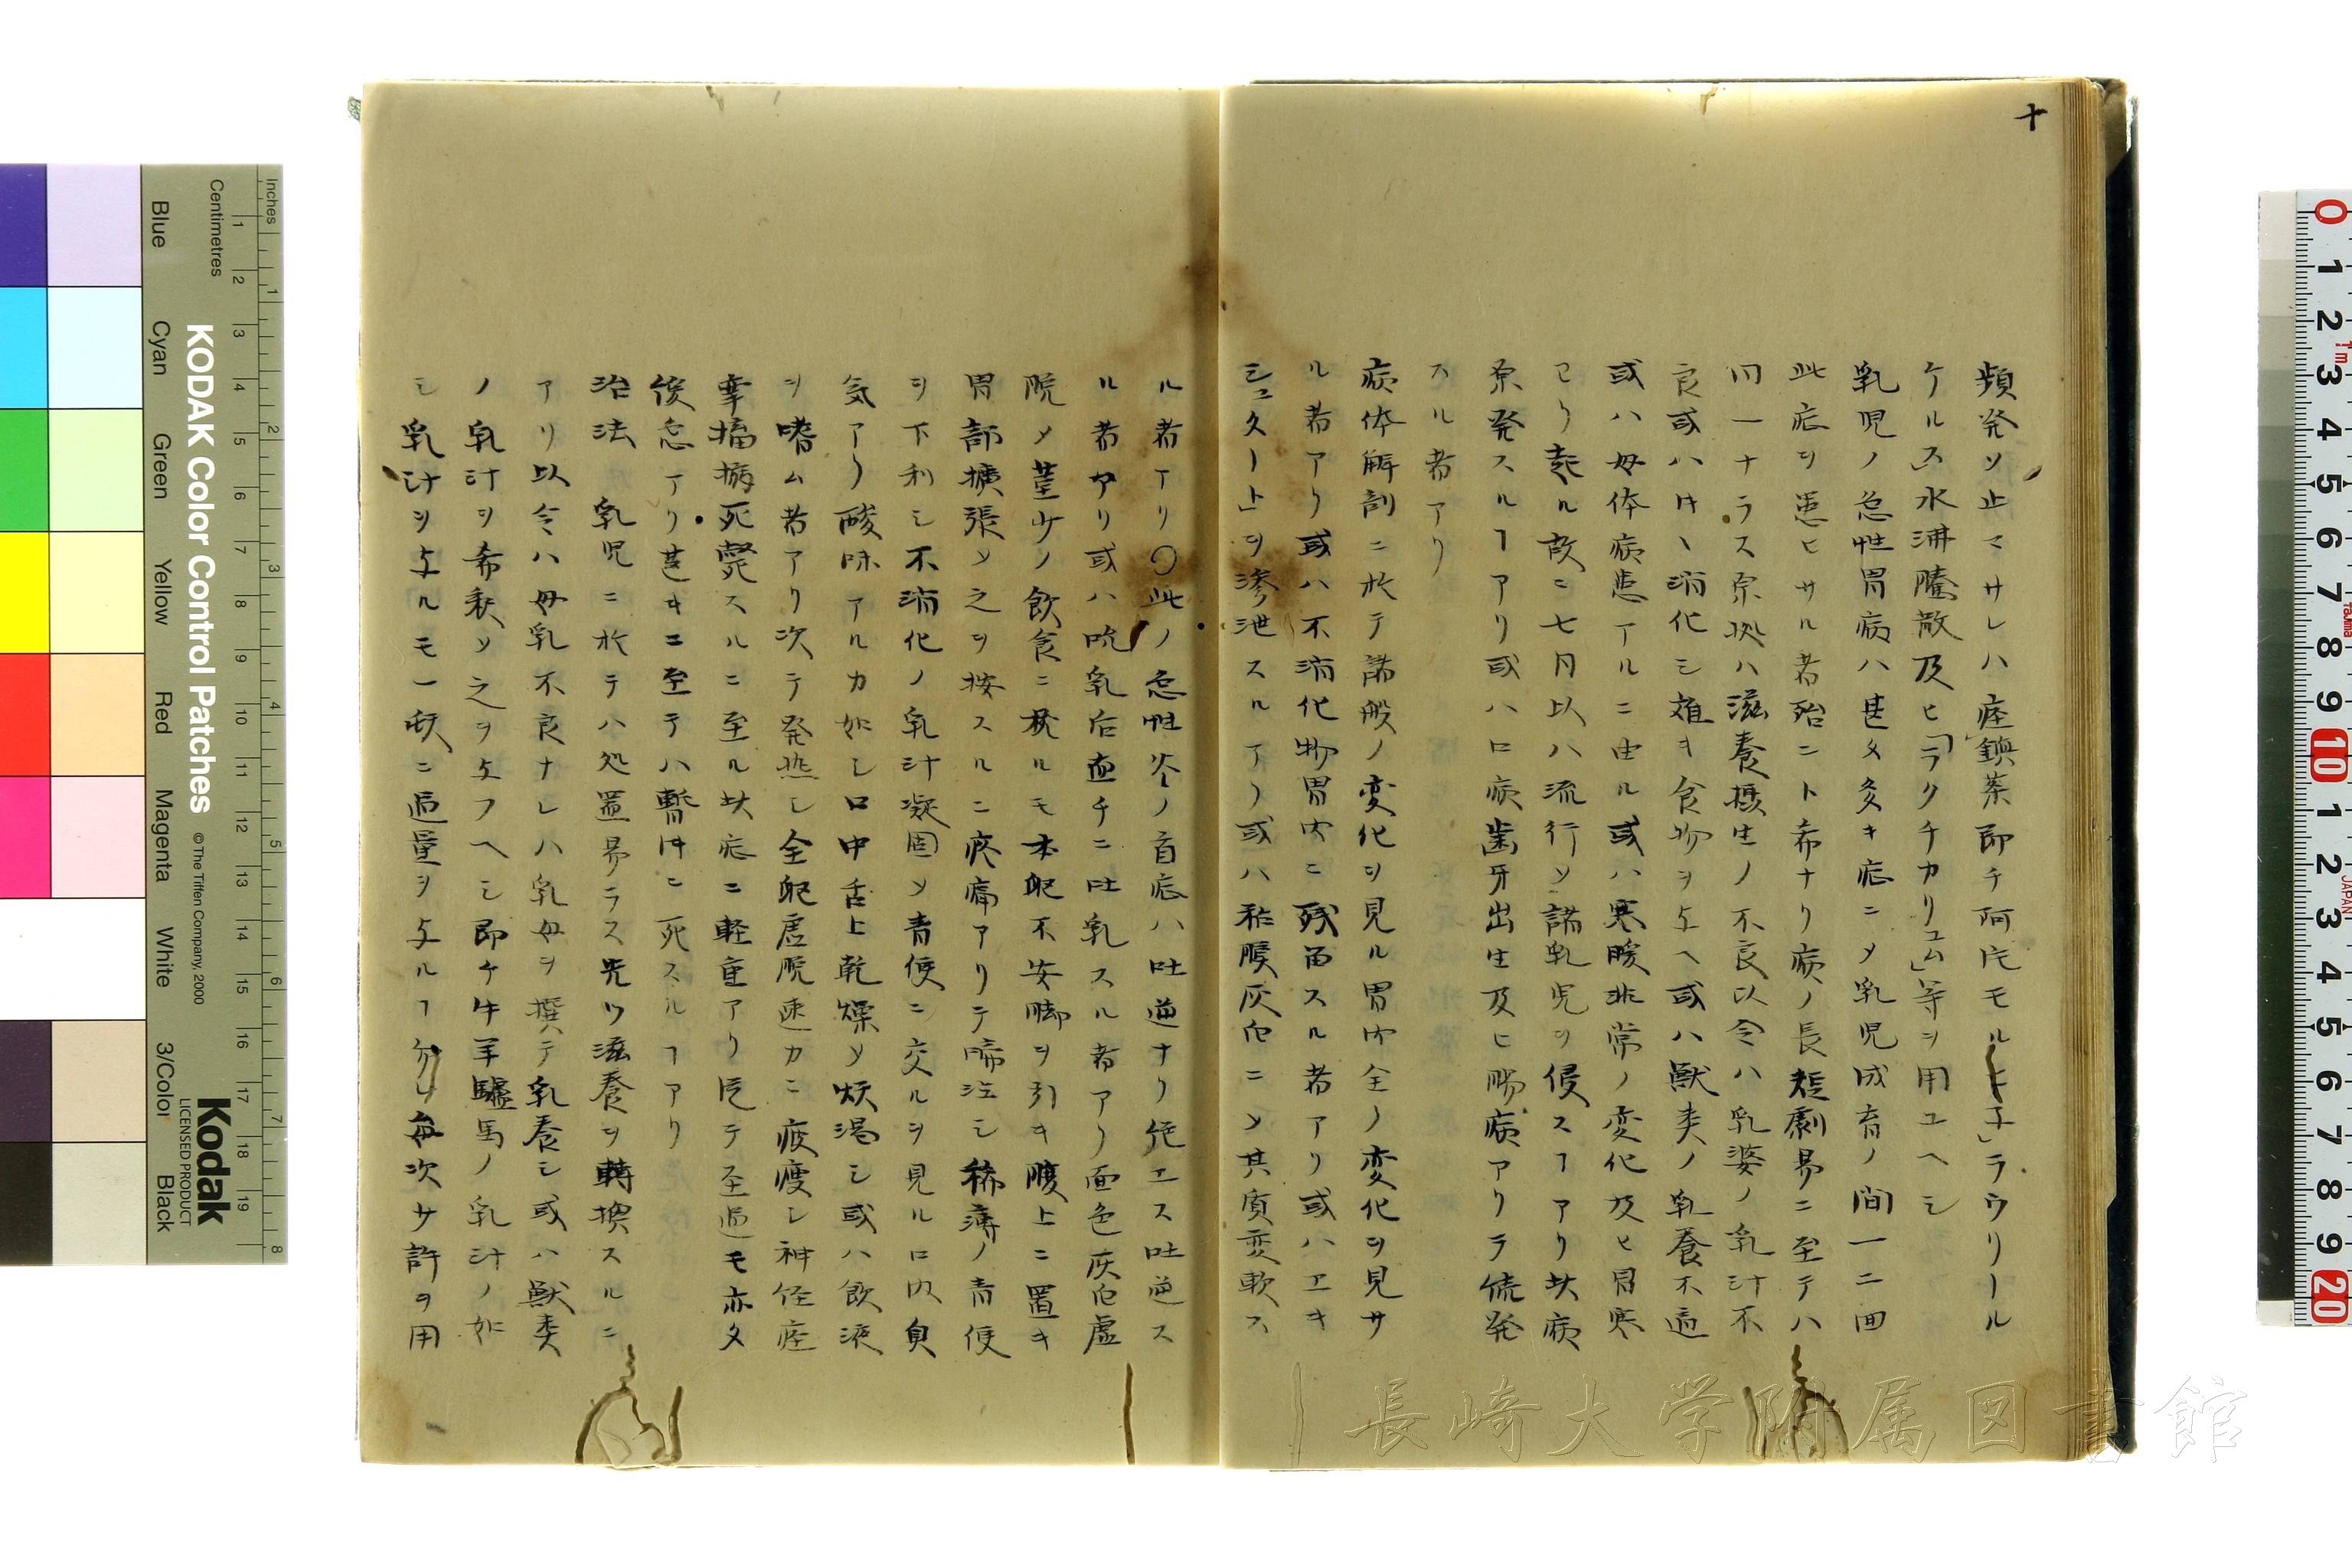 十
頻発ソ止マサレハ痙鎮薬即チ阿片モルヒ子」ラウリール
ケルス」水沸騰散及ヒ「ラクチカリュム」等ヲ用ユヘシ
乳児ノ急性胃病ハ甚タ多キ症ニメ乳児成育ノ間一二回
此症ヲ患ヒサル者殆ント希ナリ病ノ長短劇易ニ至テハ
同一ナラス原拠ハ滋養摂生ノ不良以令ハ乳婆ノ乳汁不
良或ハ消化シ難キ食物ヲ与ヘ或ハ獣类ノ乳養不適
或ハ母体病患アルニ由ル或ハ寒暖非常ノ変化及ヒ冒寒
ヨリ起ル故ニ七月以ハ流行ソ諸乳児ヲ侵スヿアリ此病
原発スルヿアリ或ハ口病歯牙出生及ヒ腸病アリテ続発
スル者アリ
病体解剖ニ於テ諸般ノ変化ヲ見ル胃内全ノ変化ヲ見サ
ル者アリ或ハ不消化物胃内ニ残留スル者アリ或ハヱキ
シュタート」ヲ滲泄スルアリ或ハ粘膜灰白ニソ其質変軟ス
ル者アリ〇此ノ急性炎ノ首症ハ吐逆ナリ絶エス吐逆ス
ル者アリ或ハ吮乳后直チニ吐乳スル者アリ面色灰白虚
脱メ莖少ノ飲食ニ於ルモ本眠不安脚ヲ引キ腹上ニ置キ
胃部擴張ソ之ヲ按スルニ疼痛アリテ啼泣シ稀薄ノ青便
ヲ下利シ不消化ノ乳汁凝固ソ青便ニ交ルヲ見ル口内臭
気アリ酸味アルカ如シ口中舌上乾燥ソ煩渇シ或ハ飲液
ヲ嗜ム者アリ次テ発熱シ全躯虚脱速カニ疲痩シ神経痙
攣搐搦死斃スルニ至ル此症ニ軽重アリ凡テ至適モ亦タ
後急アリ甚キニ至テハ暫時ニ死スルヿアリ
治法 乳児ニ於テハ処置易ラス先ツ滋養ヲ轉換スルニ
アリ以令ハ母乳不良ナレハ乳母ヲ撰テ乳養シ或ハ獣类
ノ乳汁ヲ希釈ソ之ヲ与フヘシ即チ牛羊驢馬ノ乳汁ノ如
シ乳汁ヲ与ルモ一頓ニ過量ヲ与ルヿ勿レ毎次サ許ヲ用
Inches
Centimetres
KODAK Color Control Patches
© The Tiffen Company, 2000
Kodak
LICENSED PRODUCT
Blue
Cyan
Green
Yellow
Red
Magenta
White
3/Color
Black
長崎大学附属図書館
JAPAN